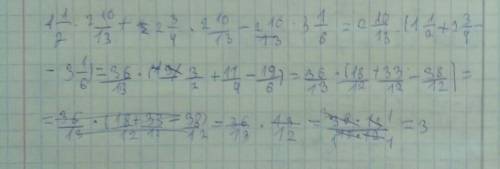 1 1/2 · 2 10/13 + 2 3/4 · 2 10/13 - 2 10/13 · 3 1/6 = 2 10/13 · (1 1/2 + 2 3/4 -
- 3 1/6) = 36/13 · (3/2 + 11/4 - 19/6) = 36/13 · (18/12 + 33/12 - 38/12) =
= 36/13 · 13/12 = = 3